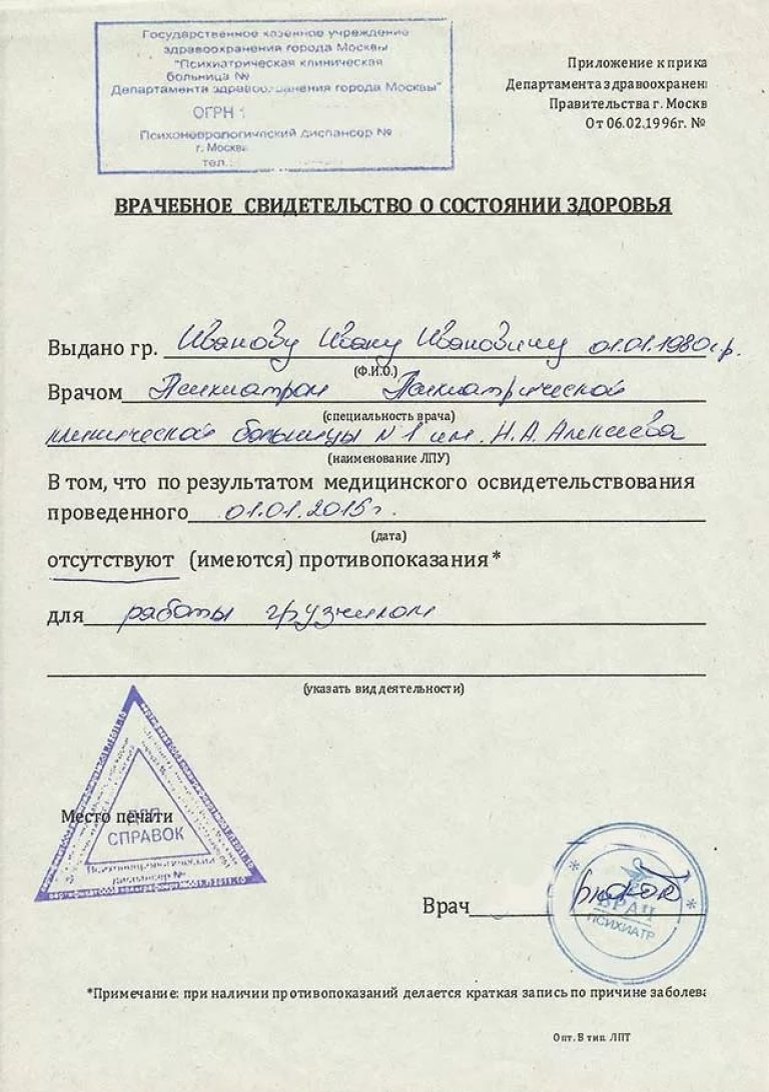 Государственное казенное учреждение
здравоохранения города Москвы
"Психиатрическая клиническая
больница №
Департамента здравоохранения города Москвы"
ОГРН 1
Психоневрологический диспансер №
г. Москва
тел.:
Приложение к прика
Департамента здравоохранен
Правительства г. Москв
От 06.02.1996г. №
ВРАЧЕБНОЕ СВИДЕТЕЛЬСТВО О СОСТОЯНИИ ЗДОРОВЬЯ
Выдано гр. Иванову Ивану Ивановичу 01.01.1980г.р.
(Ф.И.О.)
Врачом Психиатром Психиатрической
(специальность врача)
клинической больницы №1 им. Н.А. Алексеева
(наименование ЛПУ)
В том, что по результатом медицинского освидетельствования
проведенного 01.01.2015г.
(дата)
отсутствуют (имеются) противопоказания*
для работы грузчиком
(указать вид деятельности)
Место печати
ДЛЯ
СПРАВОК
Психоневрологический
диспансер №
Врач
ВРАЧ
ПСИХИАТР
*Примечание: при наличии противопоказаний делается краткая запись по причине заболева
Опт. В тип. ЛПТ